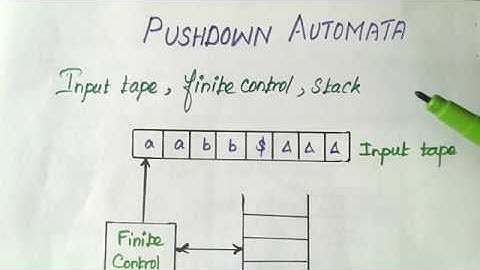 PUSHDOWN AUTOMATA
Input tape, finite control, stack
a a b b $ Δ Δ Δ Input tape
Finite
Control